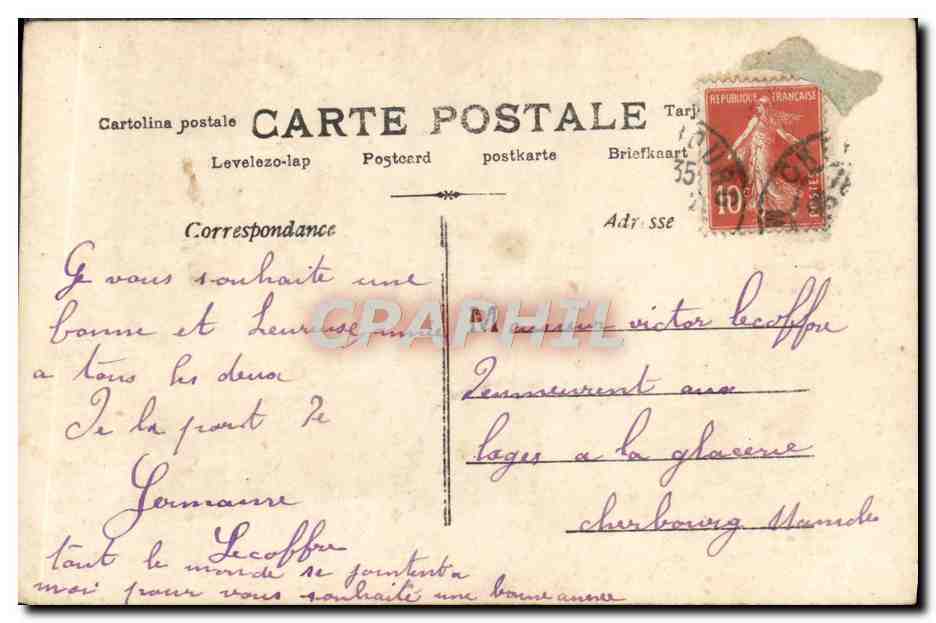 CARTE POSTALE
Cartolina postale
Tarj
Levelezo-lap Postcard postkarte Briefkaart
REPUBLIQUE FRANÇAISE
10c
POSTES
Correspondance
Adresse
Je vous souhaite une
bonne et heureuse anne
a tous les deux
De la part De
Germaine
Lecoffre
tout le monde se jointent a
moi pour vous souhaité une bonne annee
Monsieur victor lecoffre
Demeurent aux
loges a la glacerie
cherbourg Manche
GRAPHIL